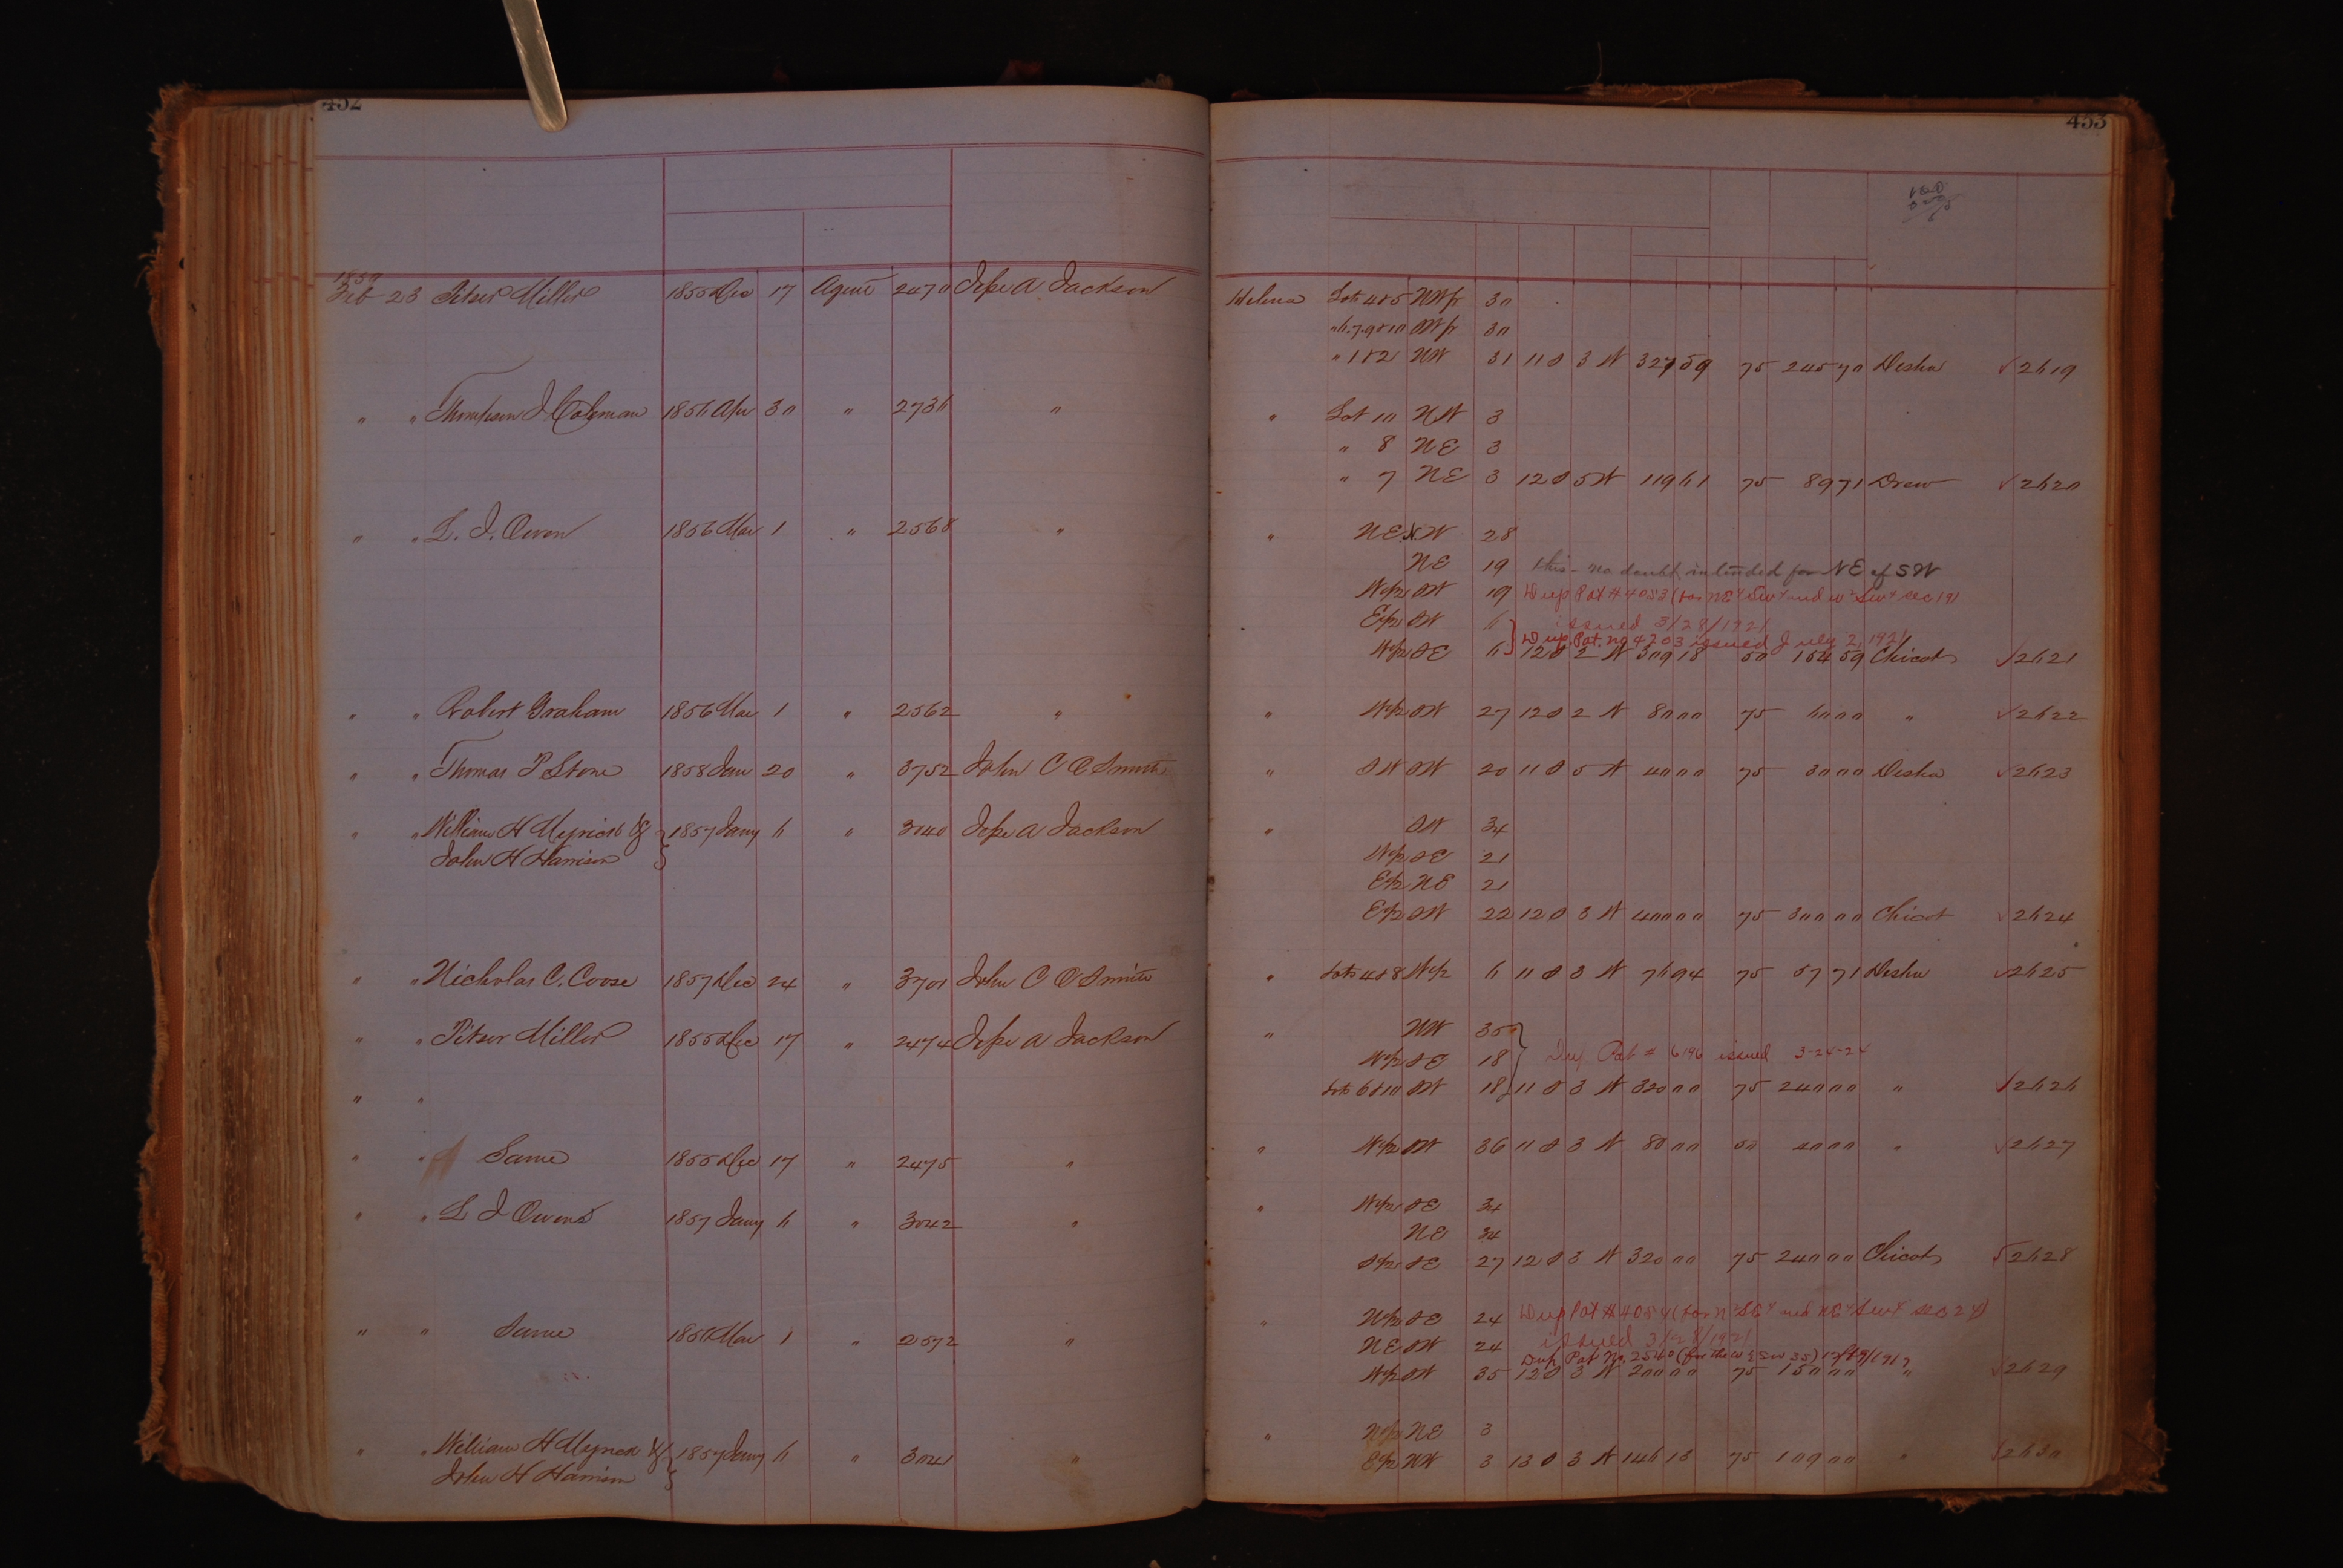 452
453
1859
Feb 23 Pitser Miller 1855 Dec 17 Agent 2470 Jesse A Jackson Helena Lots 4&5 NWfr 30
" 6.7.9&10 SWfr 30
" 1&2 NW 31 11 S 3 W 327 59 75 245 70 Desha √2619
" " Thompson J Coleman 1856 Apr 30 " 2736 " " Lot 10 NW 3
" 8 NE 3
" 7 NE 3 12 S 5 W 119 61 75 89 71 Drew √2620
" " L. J. Owen 1856 Mar 1 " 2568 " " NE NW 28
NE 19 this - no doubt intended for NE of SW
W½ SW 19 Dup Pat # 4053 (for NE⁴ SW⁴ and W² SW⁴ sec 19)
E½ SW 6 issued 3/28/1921
Dup. Pat. no 4203 issued July 2, 1921
W½ SE 6 12 S 2 W 309 18 50 154 59 Chicot √2621
" " Robert Graham 1856 Mar 1 " 2562 " " W½ SW 27 12 S 2 W 80 00 75 60 00 " √2622
" " Thomas P Stone 1858 Jan 20 " 3752 John C O Smith " SW SW 20 11 S 5 W 40 00 75 30 00 Desha √2623
" " William H Myrick & } 1857 Jany 6 " 3040 Jesse A Jackson " SW 34
John H Harrison W½ SE 21
E½ NE 21
E½ SW 22 12 S 3 W 400 00 75 300 00 Chicot √2624
" " Nicholas C. Coose 1857 Dec 24 " 3701 John C O Smith " Lots 4&8 W½ 6 11 S 3 W 76 94 75 57 71 Desha √2625
" " Pitser Miller 1855 Dec 17 " 2474 Jesse A Jackson " NW 35
W½ SE 18 Dup Pat # 6196 issued 3-24-24
" " Lots 6&10 SW 18 11 S 3 W 320 00 75 240 00 " √2626
" " Same 1855 Dec 17 " 2475 " " W½ SW 36 11 S 3 W 80 00 50 40 00 " √2627
" " L J Owens 1857 Jany 6 " 3042 " " W½ SE 34
NE 34
S½ SE 27 12 S 3 W 320 00 75 240 00 Chicot √2628
" " Same 1856 Mar 1 " 2572 " " N½ SE 24 Dup Pat # 4054 (for N² SE⁴ and NE⁴ SW⁴ sec 24)
NE SW 24 issued 3/28/1921
Dup Pat No. 2540 (for the W½ SW 35)
W½ SW 35 12 S 3 W 200 00 75 150 00 " √2629
" " William H Myrick & } 1857 Jany 6 " 3041 " " N½ NE 3
John H Harrison E½ NW 3 13 S 3 W 146 13 75 109 00 " √2630